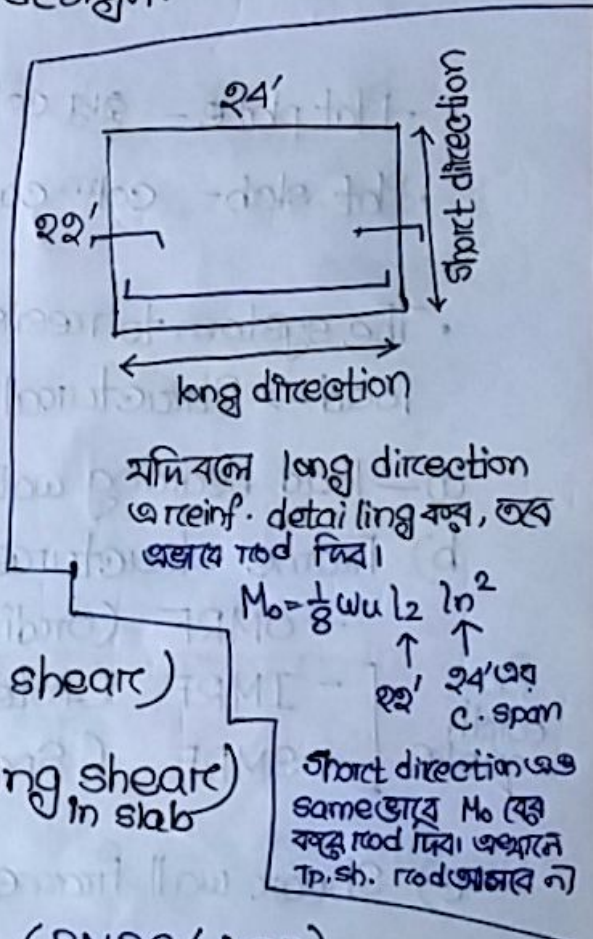 24'
22'
short direction
long direction
যদি বলে long direction
এ reinf. detailing কর, তবে
এভাবে rod দিব।
M₀ = 1/8 Wu l2 ln²
22' 24' এর
c. span
shear)
ng shear)
in slab
Short direction এও
same ভাবে M₀ বের
করে rod দিব। এখানে
Tp. sh. rod আসবে না